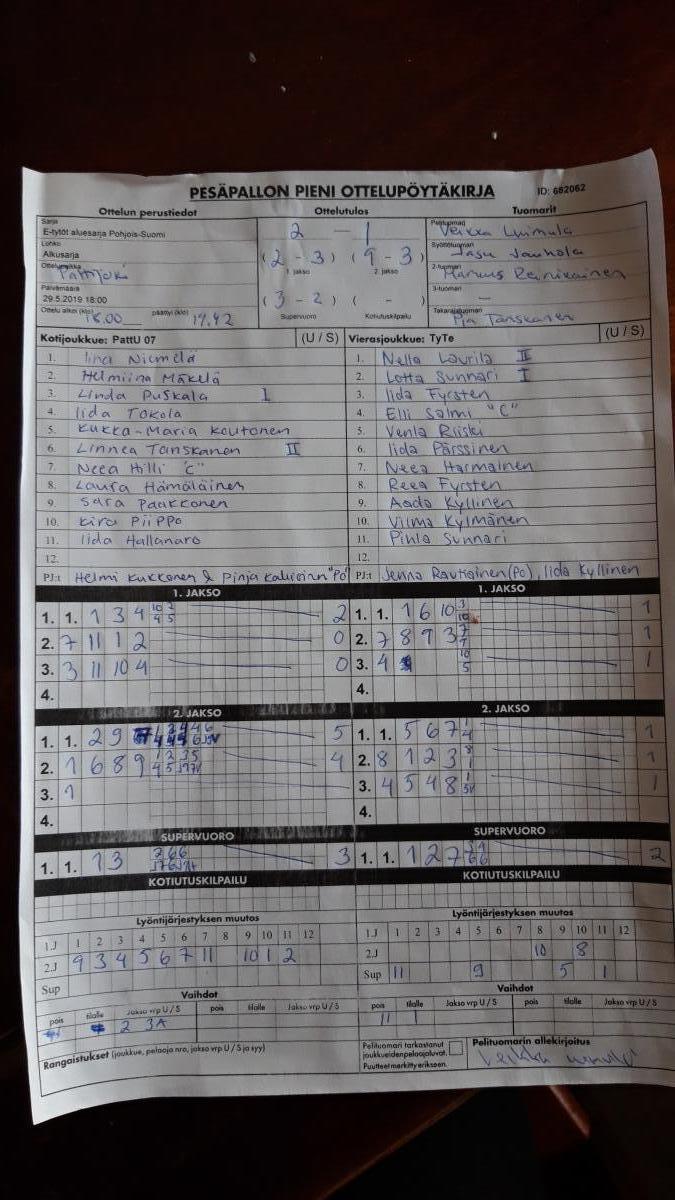 PESÄPALLON PIENI OTTELUPÖYTÄKIRJA ID: 662062
Ottelun perustiedot Ottelutulos Tuomarit
Sarja
E-tytöt aluesarja Pohjois-Suomi
Lohko
Alkusarja
Ottelupaikka
Pattijoki
Päivämäärä
29.5.2019 18:00
Ottelu alkoi (klo) 18.00 päättyi (klo) 19.42
2 - 1
(2 - 3) (9 - 3)
1. jakso 2. jakso
(3 - 2) ( - )
Supervuoro Kotiutuskilpailu
Pelituomari Veikka
Syöttötuomari
2-tuomari
3-tuomari —
Takarajatuomari Pia Tanskanen
Kotijoukkue: PattU 07 (U / S)
1. Iina Niemelä
2. Helmiina Mäkelä
3. Linda Puskala I
4. Iida Tokola
5. Kukka-Maria Koutonen
6. Linnea Tanskanen II
7. Neea Hilli "C"
8. Laura Hämäläinen
9. Sara Paakkonen
10. Kira Piippo
11. Iida Hallanaro
12.
PJ:t Helmi Kukkonen & Pinja
Vierasjoukkue: TyTe (U / S)
1. Nella Laurila II
2. Lotta Sunnari I
3. Iida Fyrsten
4. Elli Salmi "C"
5. Venla Riiski
6. Iida Pärssinen
7. Neea Harmainen
8. Reea Fyrsten
9. Aada Kyllinen
10. Vilma Kylmänen
11. Pihla Sunnari
12.
PJ:t Jenna Rautiainen (Po), Iida Kyllinen
1. JAKSO 1. JAKSO
1. 1. 1 3 4 2 1. 1. 1 6 10 1
2. 7 11 1 2 0 2. 7 8 9 3 1
3. 3 11 10 4 0 3. 4 1
4. 4.
2. JAKSO 2. JAKSO
1. 1. 2 9 5 1. 1. 5 6 7 1
2. 1 6 8 9 4 2. 8 1 2 3 1
3. 1 3. 4 5 4 8 1
4. 4.
SUPERVUORO SUPERVUORO
1. 1. 1 3 3 1. 1. 1 2 7 2
KOTIUTUSKILPAILU KOTIUTUSKILPAILU
Lyöntijärjestyksen muutos Lyöntijärjestyksen muutos
1.J 1 2 3 4 5 6 7 8 9 10 11 12
2.J 9 3 4 5 6 7 11 10 1 2
Sup
1.J 1 2 3 4 5 6 7 8 9 10 11 12
2.J 10 8
Sup 11 9 5 1
Vaihdot Vaihdot
pois tilalle Jakso vrp U / S pois tilalle Jakso vrp U / S
2 3A
pois tilalle Jakso vrp U / S pois tilalle Jakso vrp U / S
11 1
Rangaistukset (joukkue, pelaaja nro, jakso vrp U / S ja syy)
Pelituomari tarkastanut
joukkueiden pelaajaluvat.
Puutteet merkitty erikseen.
Pelituomarin allekirjoitus